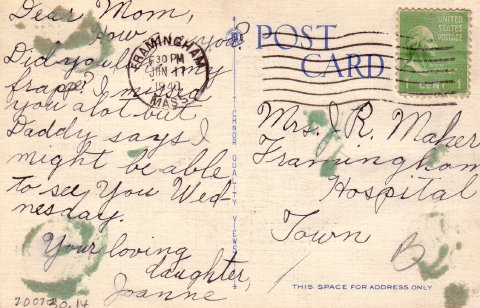 Dear Mom,
How you?
Did you my
frappe? I missed
you alot but
Daddy says I
might be able
to see You Wed-
nesday.
Your loving
daughter,
Joanne
2007.30.14
FRAMINGHAM
630 PM
JUN 17
MASS.
TICHNOR QUALITY VIEWS
POST
CARD
UNITED
STATES
POSTAGE
1 CENT
Mrs. J. R. Maher
Framingham
Hospital
Town
B
THIS SPACE FOR ADDRESS ONLY